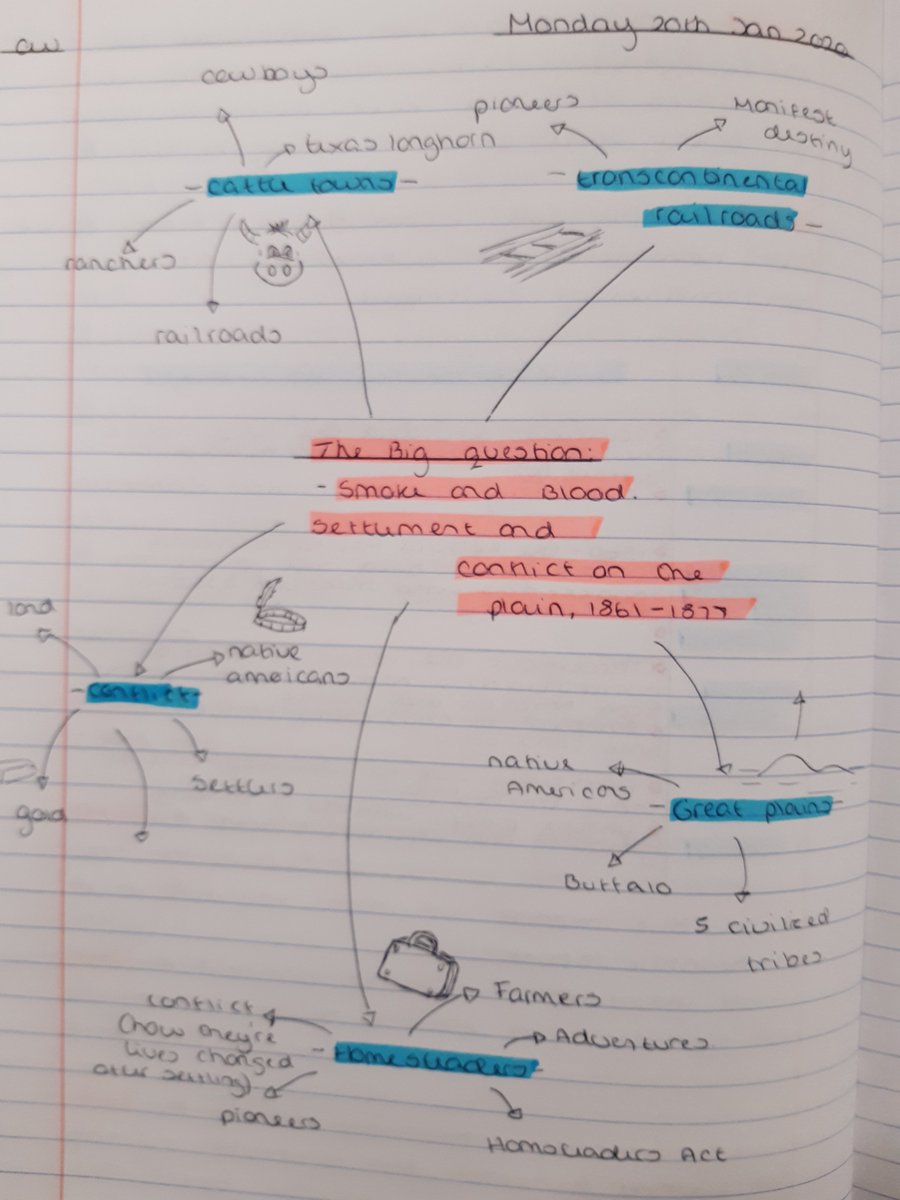 cw
Monday 20th Jan 2020
cowboys
texas longhorn
cattle towns
ranchers
railroads
pioneers
Manifest
destiny
transcontinental
railroads
The Big question:
- Smoke and Blood.
Settlement and
conflict on the
plain, 1861-1877
land
native
ameicans
conflict
settlers
gold
native
Americans
Great plains
Buffalo
5 civilized
tribes
Farmers
conflict
(how they're
lives changed
after settling)
Adventures
Homesteaders
pioneers
Homesteaders Act